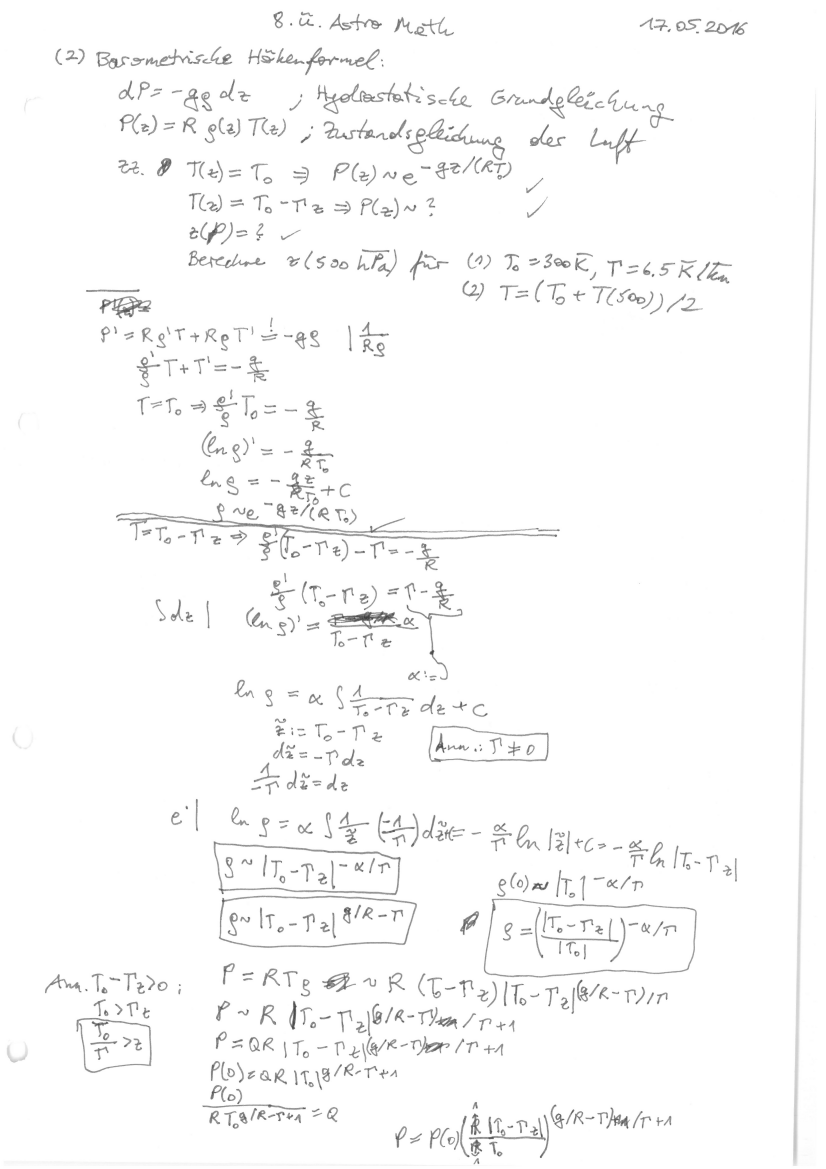 8. ü. Astro Meth 17.05.2016
(2) Barometrische Höhenformel:
dP = -gρ dz ; Hydrostatische Grundgleichung
P(z) = R ρ(z) T(z) ; Zustandsgleichung der Luft
zz. T(z) = T₀ ⇒ P(z) ~ e^-gz/(RT₀) ✓
T(z) = T₀ - Γz ⇒ P(z) ~ ? ✓
z(P) = ? ✓
Berechne z(500 hPa) für (1) T₀ = 300K, Γ = 6.5 K/km
(2) T = (T₀ + T(500))/2
P' = Rρ'T + RρT' =! -gρ | 1/Rρ
ρ'/ρ T + T' = - g/R
T = T₀ ⇒ ρ'/ρ T₀ = - g/R
(ln ρ)' = - g/RT₀
ln ρ = - gz/RT₀ + C
ρ ~ e^-gz/(RT₀) ✓
T = T₀ - Γz ⇒ ρ'/ρ (T₀ - Γz) - Γ = - g/R
ρ'/ρ (T₀ - Γz) = Γ - g/R
∫dz | (ln ρ)' = α/T₀ - Γz
α :=
ln ρ = α ∫ 1/T₀ - Γz dz + C
z̃ := T₀ - Γz
dz̃ = -Γdz Ann.: Γ ≠ 0
1/-Γ dz̃ = dz
e^· | ln ρ = α ∫ 1/z̃ (-1/Γ) dz̃ + C = - α/Γ ln |z̃| + C = - α/Γ ln |T₀ - Γz|
ρ ~ |T₀ - Γz|^-α/Γ ρ(0) ~ |T₀|^-α/Γ
ρ ~ |T₀ - Γz|^g/R-Γ ρ = (|T₀ - Γz|/|T₀|)^-α/Γ
Ann. T₀ - Γz > 0 ; P = RTρ ~ R (T₀ - Γz) |T₀ - Γz|^(g/R-Γ)/Γ
T₀ > Γz P ~ R |T₀ - Γz|^(g/R-Γ)/Γ+1
T₀/Γ > z P = QR |T₀ - Γz|^(g/R-Γ)/Γ+1
P(0) = QR |T₀|^g/R-Γ+1
P(0)/RT₀^g/R-Γ+1 = Q
P = P(0) (R |T₀ - Γz|/R T₀)^(g/R-Γ)/Γ+1